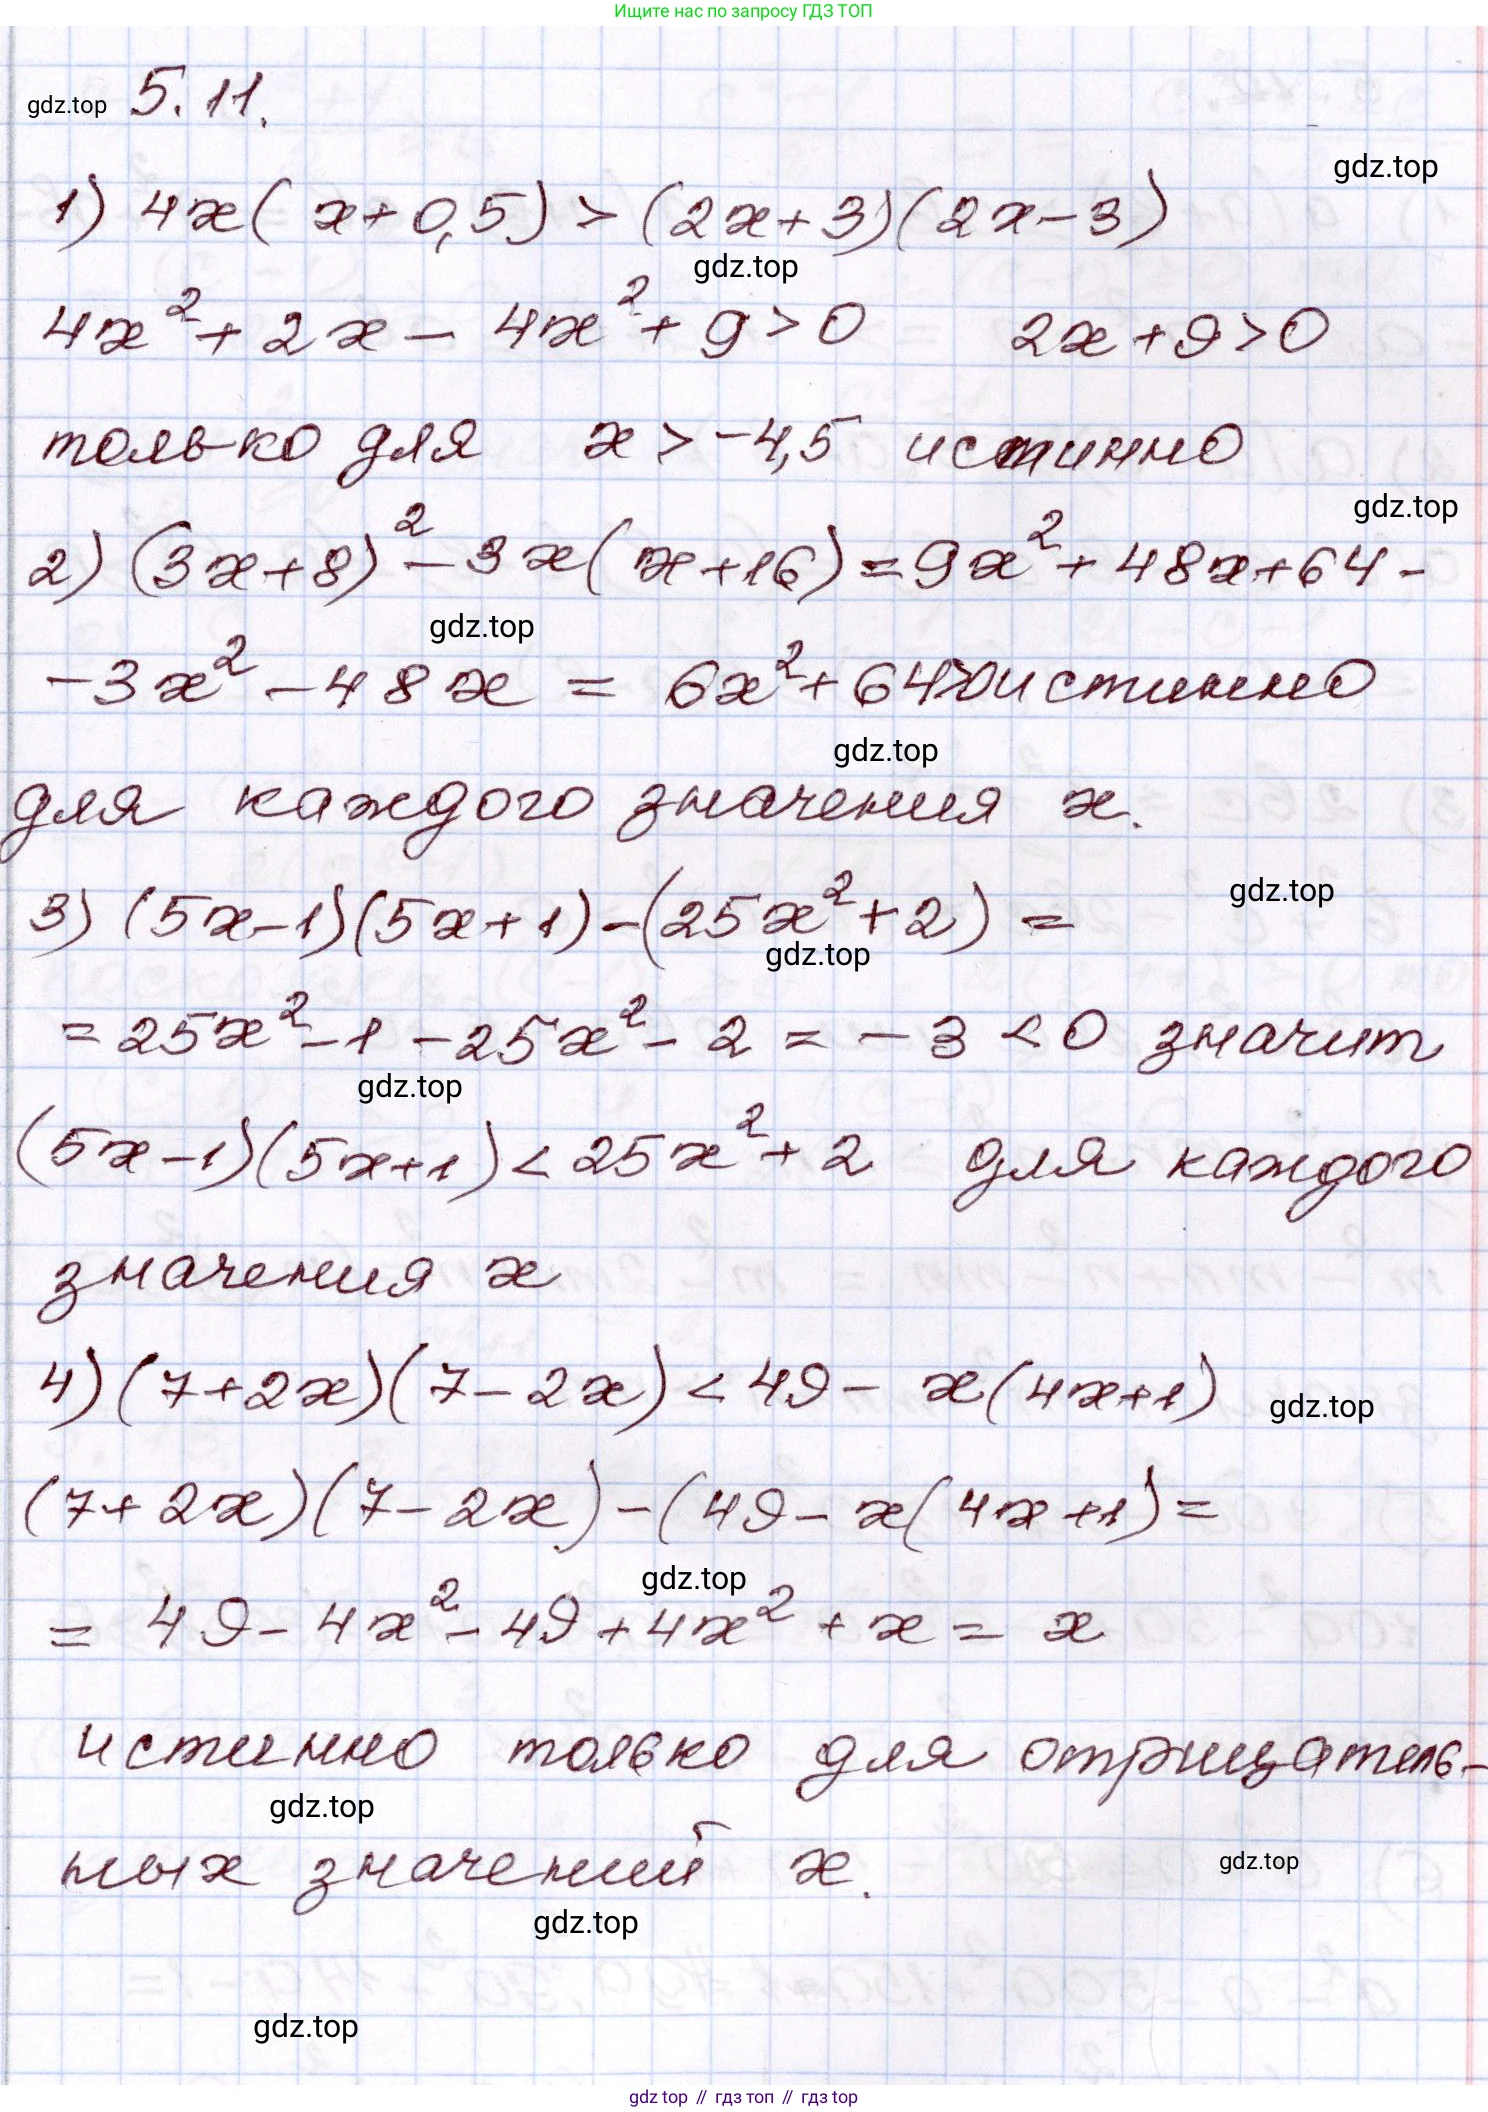 Ищите нас по запросу ГДЗ ТОП
gdz.top 5.11.
gdz.top
1) 4x(x+0,5) > (2x+3)(2x-3)
gdz.top
4x²+2x-4x²+9>0 2x+9>0
только для x > -4,5 истинно
gdz.top
2) (3x+8)²-3x(x+16)=9x²+48x+64-
gdz.top
-3x²-48x = 6x²+64>0 истинно
gdz.top
для каждого значения x.
gdz.top
3) (5x-1)(5x+1)-(25x²+2) =
gdz.top
= 25x²-1-25x²-2 = -3 < 0 значит
gdz.top
(5x-1)(5x+1) < 25x²+2 для каждого
значения x
4) (7+2x)(7-2x) < 49 - x(4x+1)
gdz.top
(7+2x)(7-2x)-(49-x(4x+1)=
gdz.top
= 49-4x²-49+4x²+x = x
истинно только для отрицатель-
gdz.top
ных значений x.
gdz.top
gdz.top
gdz.top
gdz top // гдз топ // gdz top